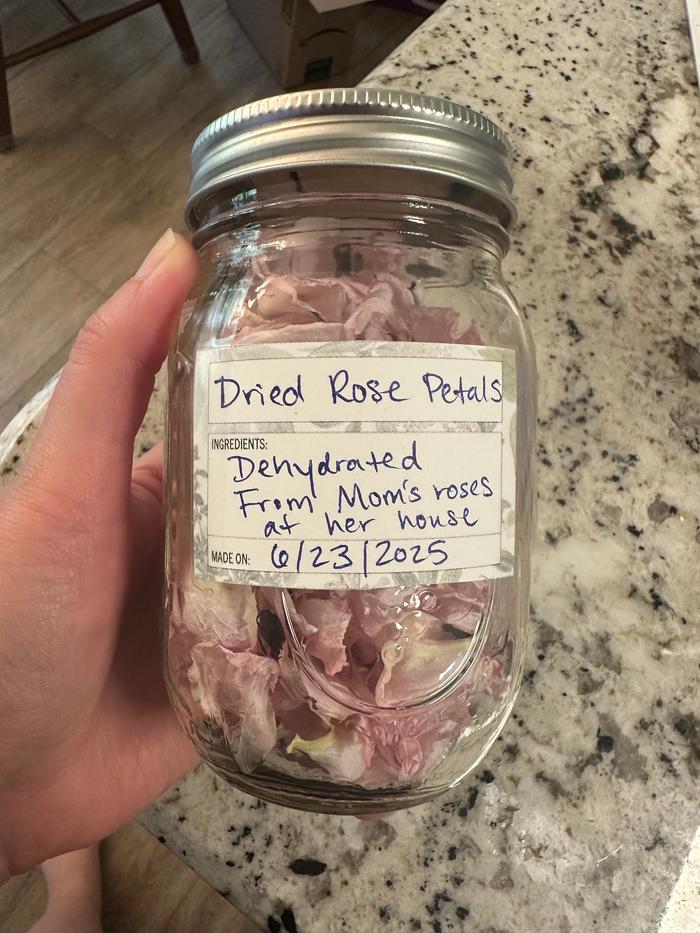 Dried Rose Petals
INGREDIENTS:
Dehydrated
From Mom's roses
at her house
MADE ON: 6/23/2025